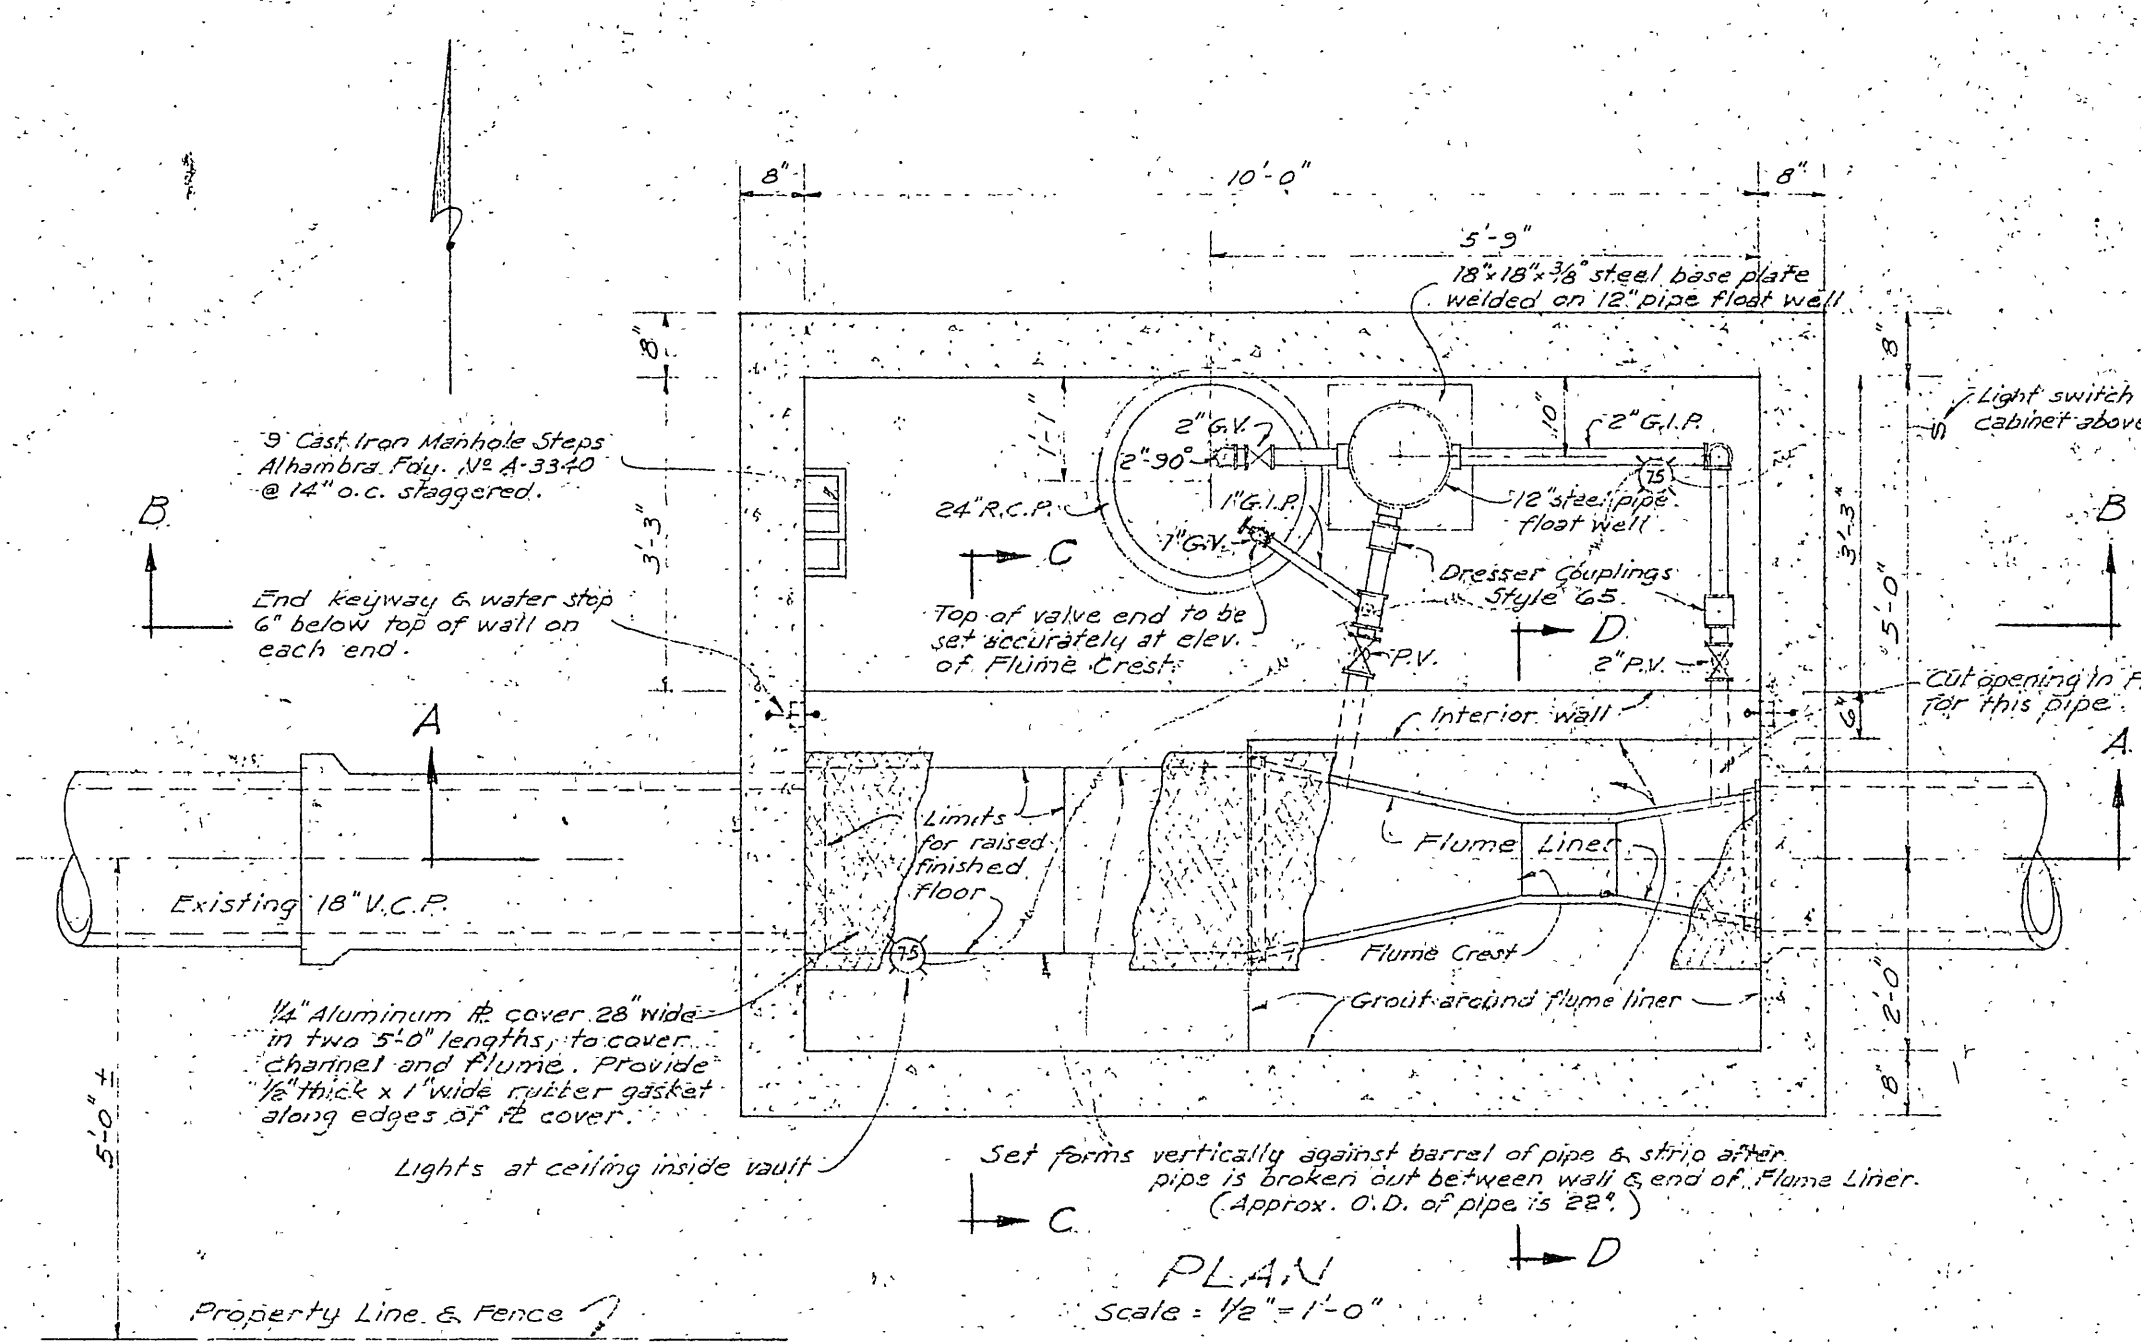 8"
10'-0"
8"
5'-9"
18"x18"x3/8" steel base plate
welded on 12" pipe float well
8"
8"
Light switch
cabinet above
S
9 Cast Iron Manhole Steps
Alhambra Fdy. Nº A-3340
@ 14" o.c. staggered.
1'-1"
2" G.V.
2"-90°
10"
2" G.I.P.
75
24" R.C.P.
1" G.I.P.
12" steel pipe
float well
1" G.V.
B
B
3'-3"
3'-3"
C
Dresser Couplings
Style 65
5'-0"
End keyway & water stop
6" below top of wall on
each end.
Top of valve end to be
set accurately at elev.
of Flume Crest
D
P.V.
2" P.V.
Cut opening in
for this pipe
6"
Interior wall
A
A
Limits
for raised
finished
floor
Flume Liner
Existing 18" V.C.P.
75
Flume Crest
Grout around flume liner
2'-0"
1/4" Aluminum PL cover 28" wide
in two 5'-0" lengths, to cover
channel and flume. Provide
1/2" thick x 1" wide rubber gasket
along edges of PL cover.
8"
5'-0" ±
Lights at ceiling inside vault
Set forms vertically against barrel of pipe & strip after
pipe is broken out between wall & end of Flume Liner.
(Approx. O.D. of pipe is 22".)
C
D
PLAN
Scale = 1/2" = 1'-0"
Property Line & Fence